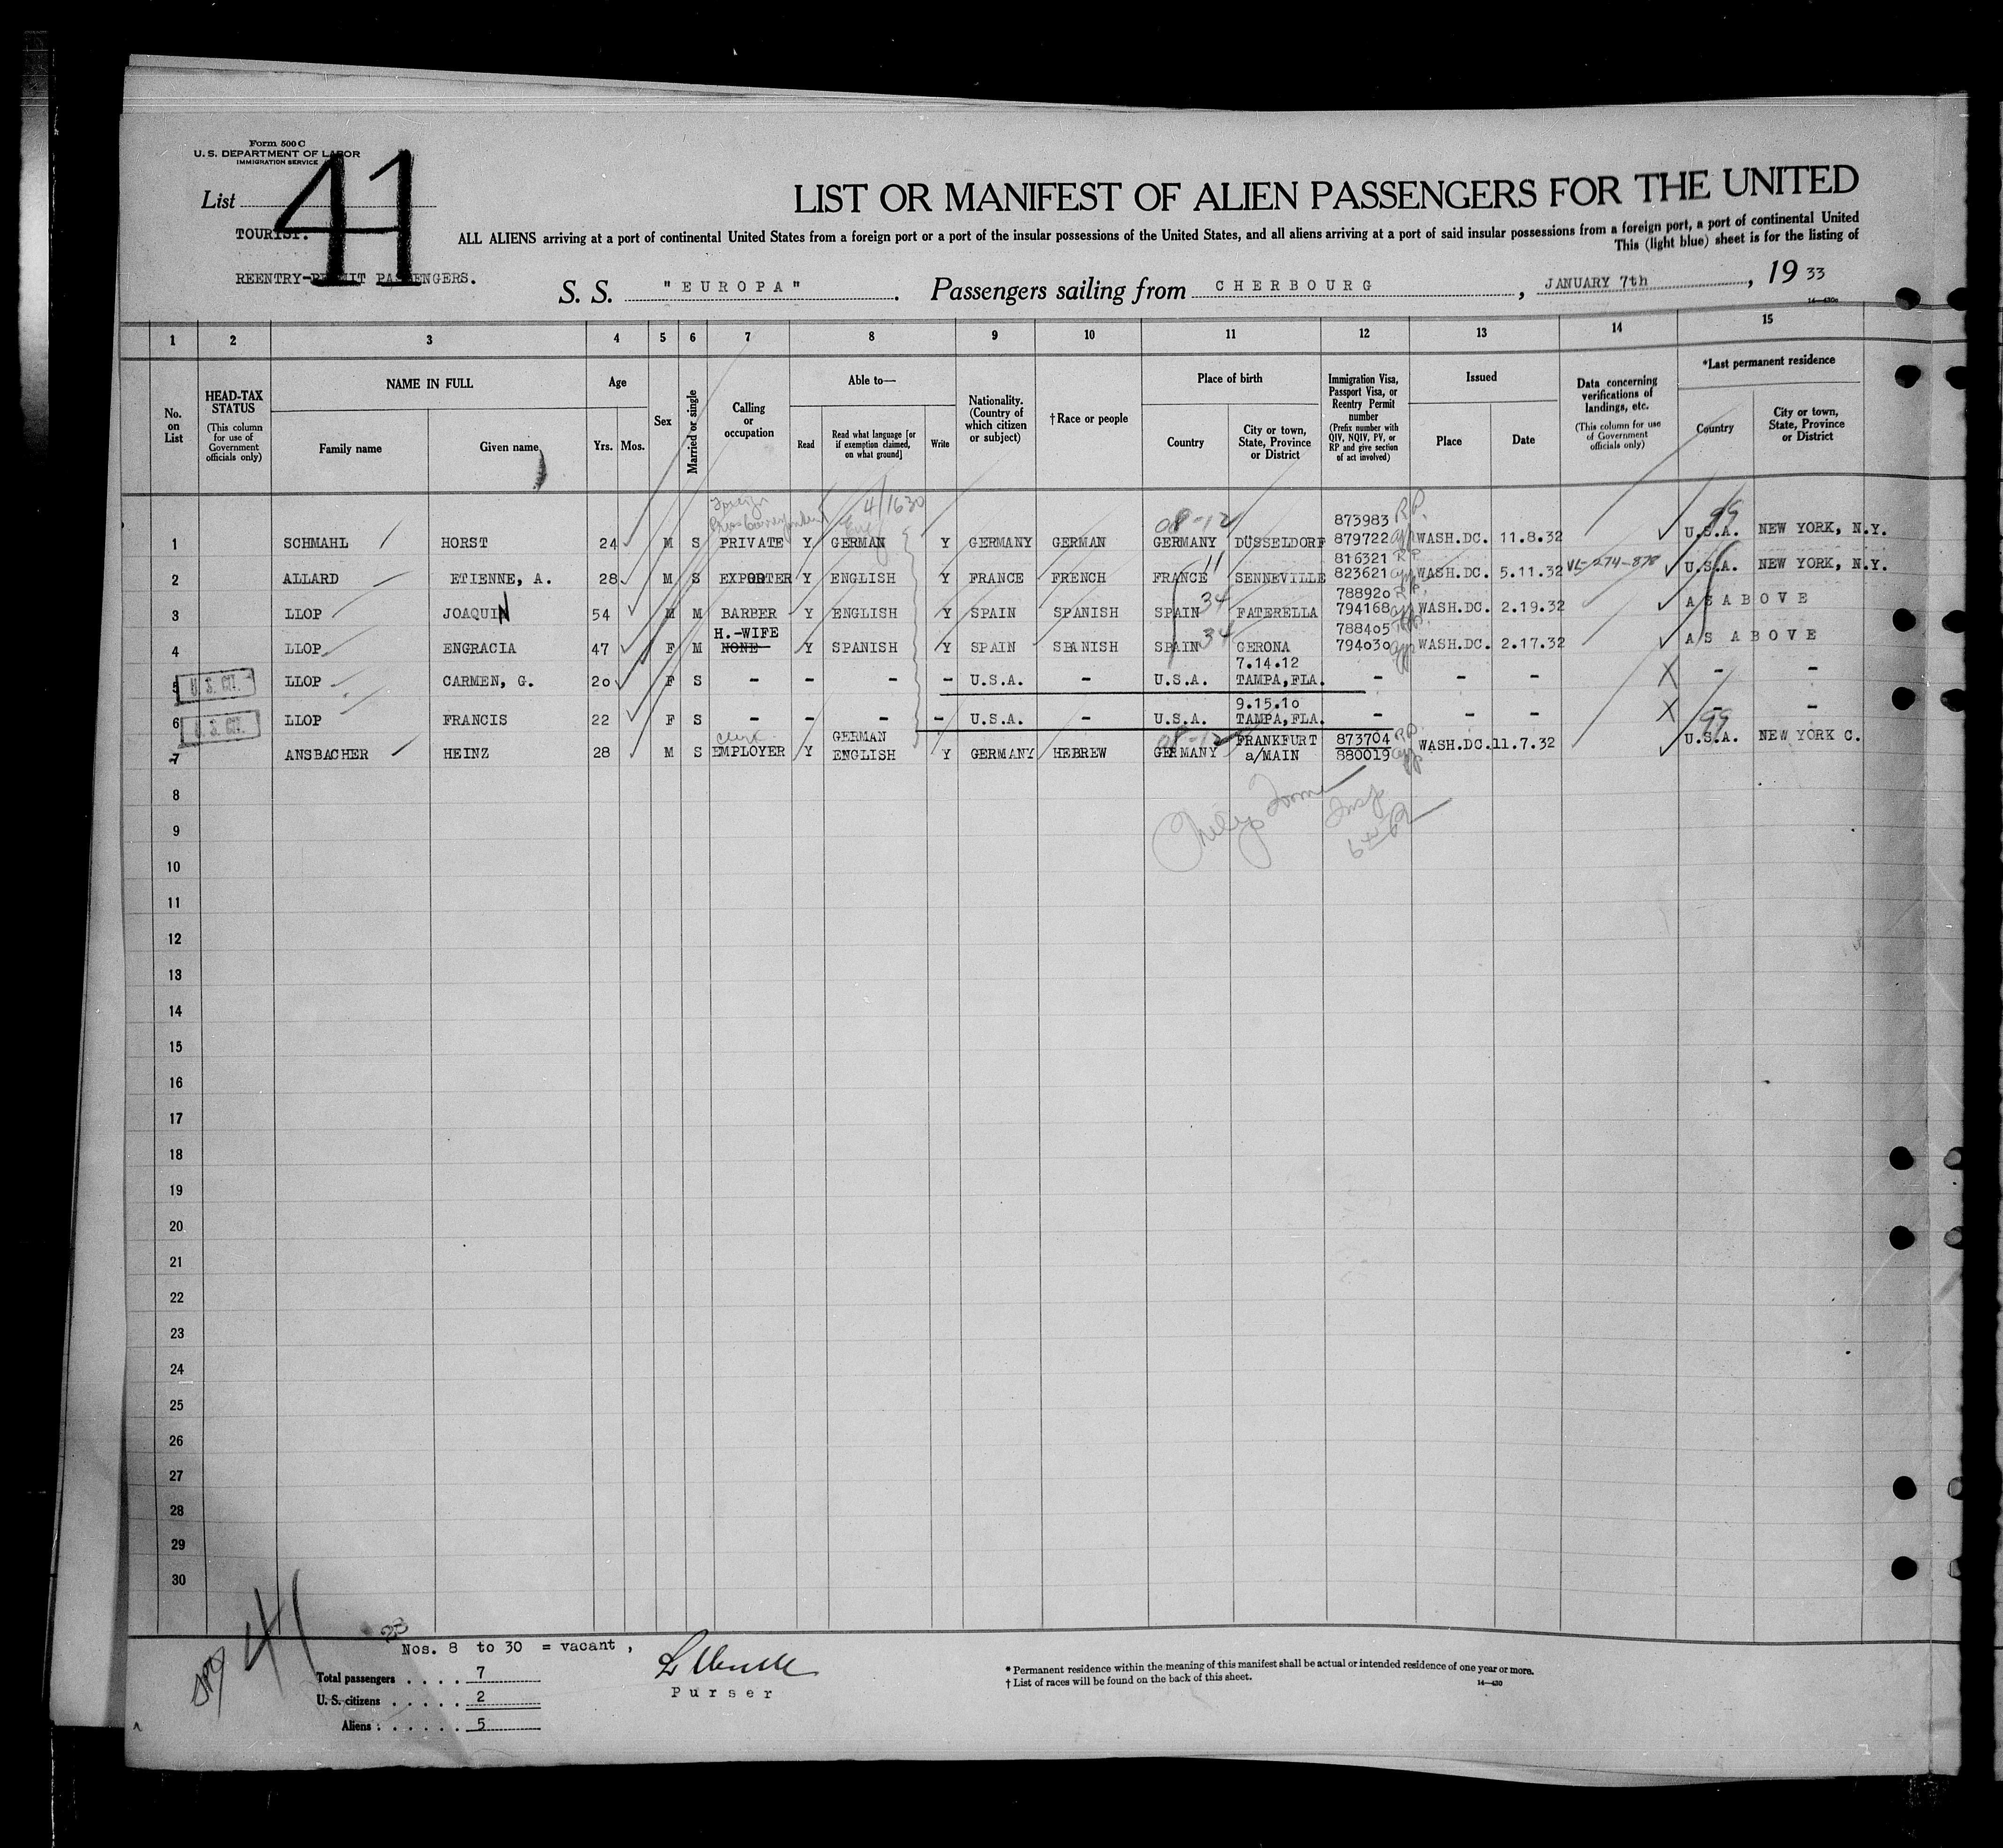 Form 500 C
U. S. DEPARTMENT OF LABOR
IMMIGRATION SERVICE
List 41
TOURIST.
REENTRY-PERMIT PASSENGERS.
LIST OR MANIFEST OF ALIEN PASSENGERS FOR THE UNITED
ALL ALIENS arriving at a port of continental United States from a foreign port or a port of the insular possessions of the United States, and all aliens arriving at a port of said insular possessions from a foreign port, a port of continental United
This (light blue) sheet is for the listing of
S. S. "EUROPA". Passengers sailing from CHERBOURG, JANUARY 7th, 19 33
14—430c
1 2 3 4 5 6 7 8 9 10 11 12 13 14 15
No. on List
HEAD-TAX STATUS (This column for use of Government officials only)
NAME IN FULL
Family name Given name
Age
Yrs. Mos.
Sex
Married or single
Calling or occupation
Able to—
Read Read what language [or if exemption claimed, on what ground] Write
Nationality. (Country of which citizen or subject)
†Race or people
Place of birth
Country City or town, State, Province or District
Immigration Visa, Passport Visa, or Reentry Permit number (Prefix number with QIV, NQIV, PV, or RP and give section of act involved)
Issued
Place Date
Data concerning verifications of landings, etc. (This column for use of Government officials only)
*Last permanent residence
Country City or town, State, Province or District
Foreign 4/1630
Press Correspondent Eng 08-12 873983 R.P. 99
1 SCHMAHL HORST 24 M S PRIVATE Y GERMAN Y GERMANY GERMAN GERMANY DÜSSELDORF 879722 app WASH.DC. 11.8.32 U.S.A. NEW YORK, N.Y.
11 816321 R.P.
2 ALLARD ETIENNE, A. 28 M S EXPORTER Y ENGLISH Y FRANCE FRENCH FRANCE SENNEVILLE 823621 app WASH.DC. 5.11.32 VL-274-878 U.S.A. NEW YORK, N.Y.
34 788920 R.P.
3 LLOP JOAQUIN 54 M M BARBER Y ENGLISH Y SPAIN SPANISH SPAIN FATERELLA 794168 app WASH.DC. 2.19.32 AS ABOVE
H.-WIFE 34 788405
4 LLOP ENGRACIA 47 F M NONE Y SPANISH Y SPAIN SPANISH SPAIN GERONA 794030 app WASH.DC. 2.17.32 AS ABOVE
7.14.12
U. S. CIT. 5 LLOP CARMEN, G. 20 F S - - - - U.S.A. - U.S.A. TAMPA, FLA. - - - X - -
9.15.10
U. S. CIT. 6 LLOP FRANCIS 22 F S - - - - U.S.A. - U.S.A. TAMPA, FLA. - - - X - -
Clerk GERMAN 08-12 FRANKFURT 873704 R.P. 99
7 ANSBACHER HEINZ 28 M S EMPLOYER Y ENGLISH Y GERMANY HEBREW GERMANY a/MAIN 880019 app WASH.DC. 11.7.32 U.S.A. NEW YORK C.
8
9
10
11
12
13
14
15
16
17
18
19
20
21
22
23
24
25
26
27
28
29
30
41
Nos. 8 to 30 = vacant,
Total passengers . . . . 7
U. S. citizens . . . . . 2
Aliens . . . . . . 5
Purser
* Permanent residence within the meaning of this manifest shall be actual or intended residence of one year or more.
† List of races will be found on the back of this sheet.
14—430